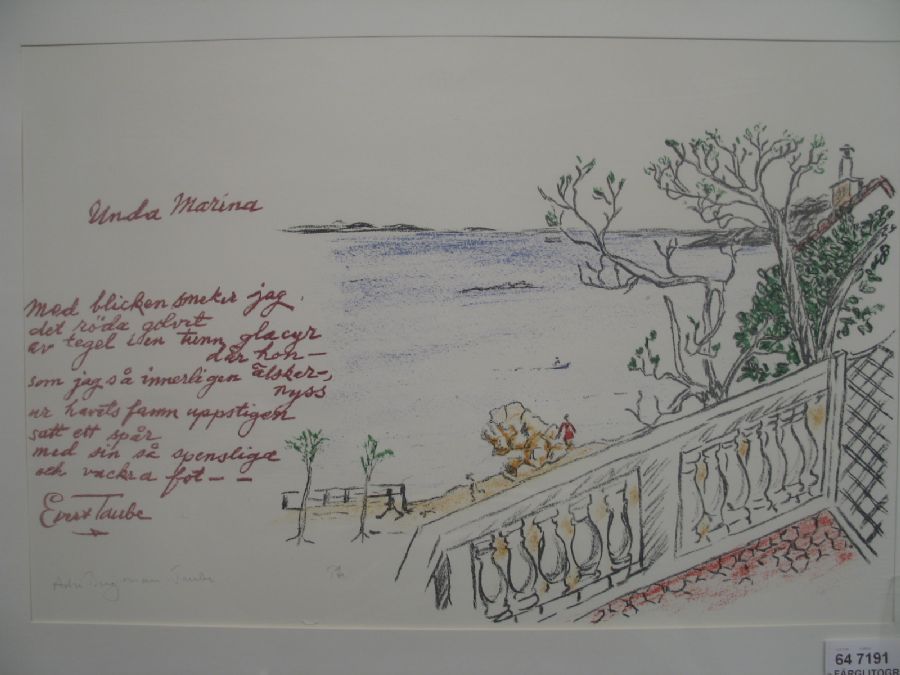 Unda Marina
Med blicken smeker jag
det röda golvet
av tegel i en tunn glacyr
där hon –
som jag så innerligen älsker –,
nyss
ur havets famn uppstigen
satt ett spår
med sin så spensliga
och vackra fot – –
Evert Taube
Taube
64 7191
FÄRGLITOGR